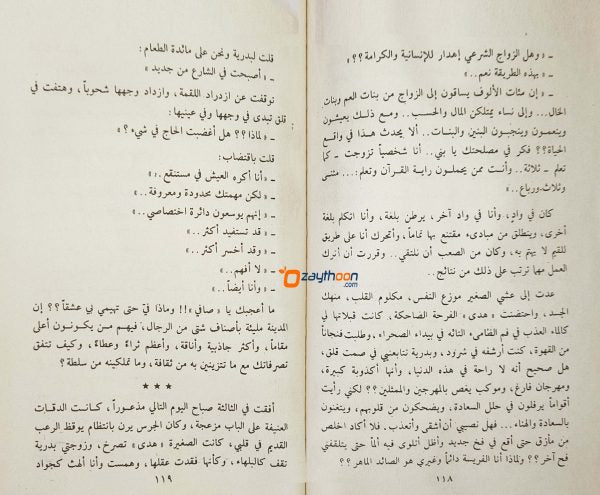 – « وهل الزواج الشرعي إهدار للإنسانية والكرامة؟؟ »
– « بهذه الطريقة نعم.. »
– « إن مئات الألوف يساقون إلى الزواج من بنات العم وبنات
الخال... وإلى نساء يمتلكن المال والحسب.. ومع ذلك يعيشون
وينعمون وينجبون البنين والبنات.. ألا يحدث هذا في واقع
الحياة؟؟ فكر في مصلحتك يا بني.. أنا شخصياً تزوجت – كما
تعلم – ثلاثة.. وأنت ممن يحملون راية القرآن وتعلم:... مثنى
وثلاث، ورباع.. »
كان في وادٍ، وأنا في واد آخر، يرطن بلغة، وأنا اتكلم بلغة
أخرى، وينطلق من مبادىء مقتنع بها تماماً، وأتحرك أنا على طريق
للقيم لا يهتم به، وكان من الصعب أن نلتقي.. وقررت أن أترك
العمل مهما ترتب على ذلك من نتائج..
عدت إلى عشي الصغير موزع النفس، مكلوم القلب، منهك
الجسد، واحتضنت « هدى » الفرحة الضاحكة، كانت قبلاتها لي
كالماء العذب في فم الظامىء التائه في بيداء الصحراء، وطلبت فنجاناً
من القهوة، كنت أرشفه في شرود، وبدرية تتابعني في صمت قلق،
هل صحيح أنه لا راحة في هذه الدنيا، وأنها أكذوبة كبيرة،
ومهرجان فارغ، وموكب يغص بالمهرجين والممثلين؟؟ لكني رأيت
أقواماً يرفلون في حلل السعادة، ويضحكون من قلوبهم، ويتغنون
بالسعادة والهناء... فهل نصيبي أن أشقى وأتعذب. فلا أكاد اخلص
من مأزق حتى أقع في فخ جديد وأظل أتلوى فيه ألماً حتى يتلقفني
فخ آخر؟؟ ولماذا أنا الفريسة دائماً وغيري هو الصائد الماهر؟؟
١١٨
قلت لبدرية ونحن على مائدة الطعام:
– « أصبحت في الشارع من جديد »
توقفت عن ازدراد اللقمة، وازداد وجهها شحوباً، وهتفت في
قلق تبدى في وجهها وفي عينيها:
– « لماذا؟؟ هل أغضبت الحاج في شيء؟ »
قلت باقتضاب:
– « أنا أكره العيش في مستنقع.. »
– « لكن مهمتك محدودة ومعروفة.. »
– « إنهم يوسعون دائرة اختصاصي.. »
– « قد تستفيد أكثر.. »
– « وقد أخسر أكثر.. »
– « لا أفهم.. »
– « وأنا أيضاً.. »
ما أعجبك يا « صافي »!! وماذا فيّ حتى تهيمي بي عشقاً؟؟ إن
المدينة مليئة بأصناف شتى من الرجال، فيهم من يكونون أعلى
مقاماً، وأكثر جاذبية وأناقة، وأعظم ثراءً وعطاءً، وكيف تتفق
تصرفاتك مع ما تتزينين به من ثقافة، وما تملكينه من سلطة؟
***
أفقت في الثالثة صباح اليوم التالي مذعوراً، كانت الدقات
العنيفة على الباب مزعجة، وكان الجرس يرن بانتظام يوقظ الرعب
القديم في قلبي، كانت الصغيرة « هدى » تصرخ، وزوجتي بدرية
تقف كالبلهاء، وكأنها فقدت عقلها، وهمست وأنا ألهث كجواد
١١٩
Ozaythoon
.com